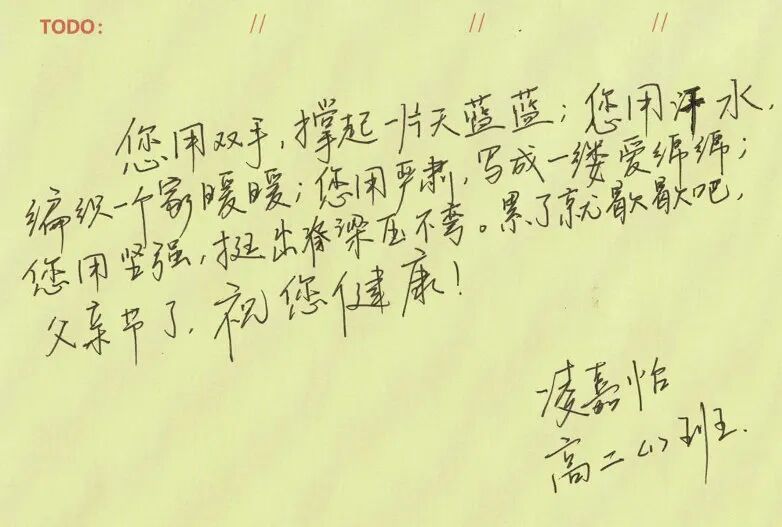 TODO: // // //
您用双手，撑起一片天蓝蓝；您用汗水，
编织一个家暖暖；您用严肃，写成一缕爱绵绵；
您用坚强，挺出脊梁压不弯。累了就歇歇吧，
父亲节了，祝您健康！
凌嘉怡
高二（1）班.